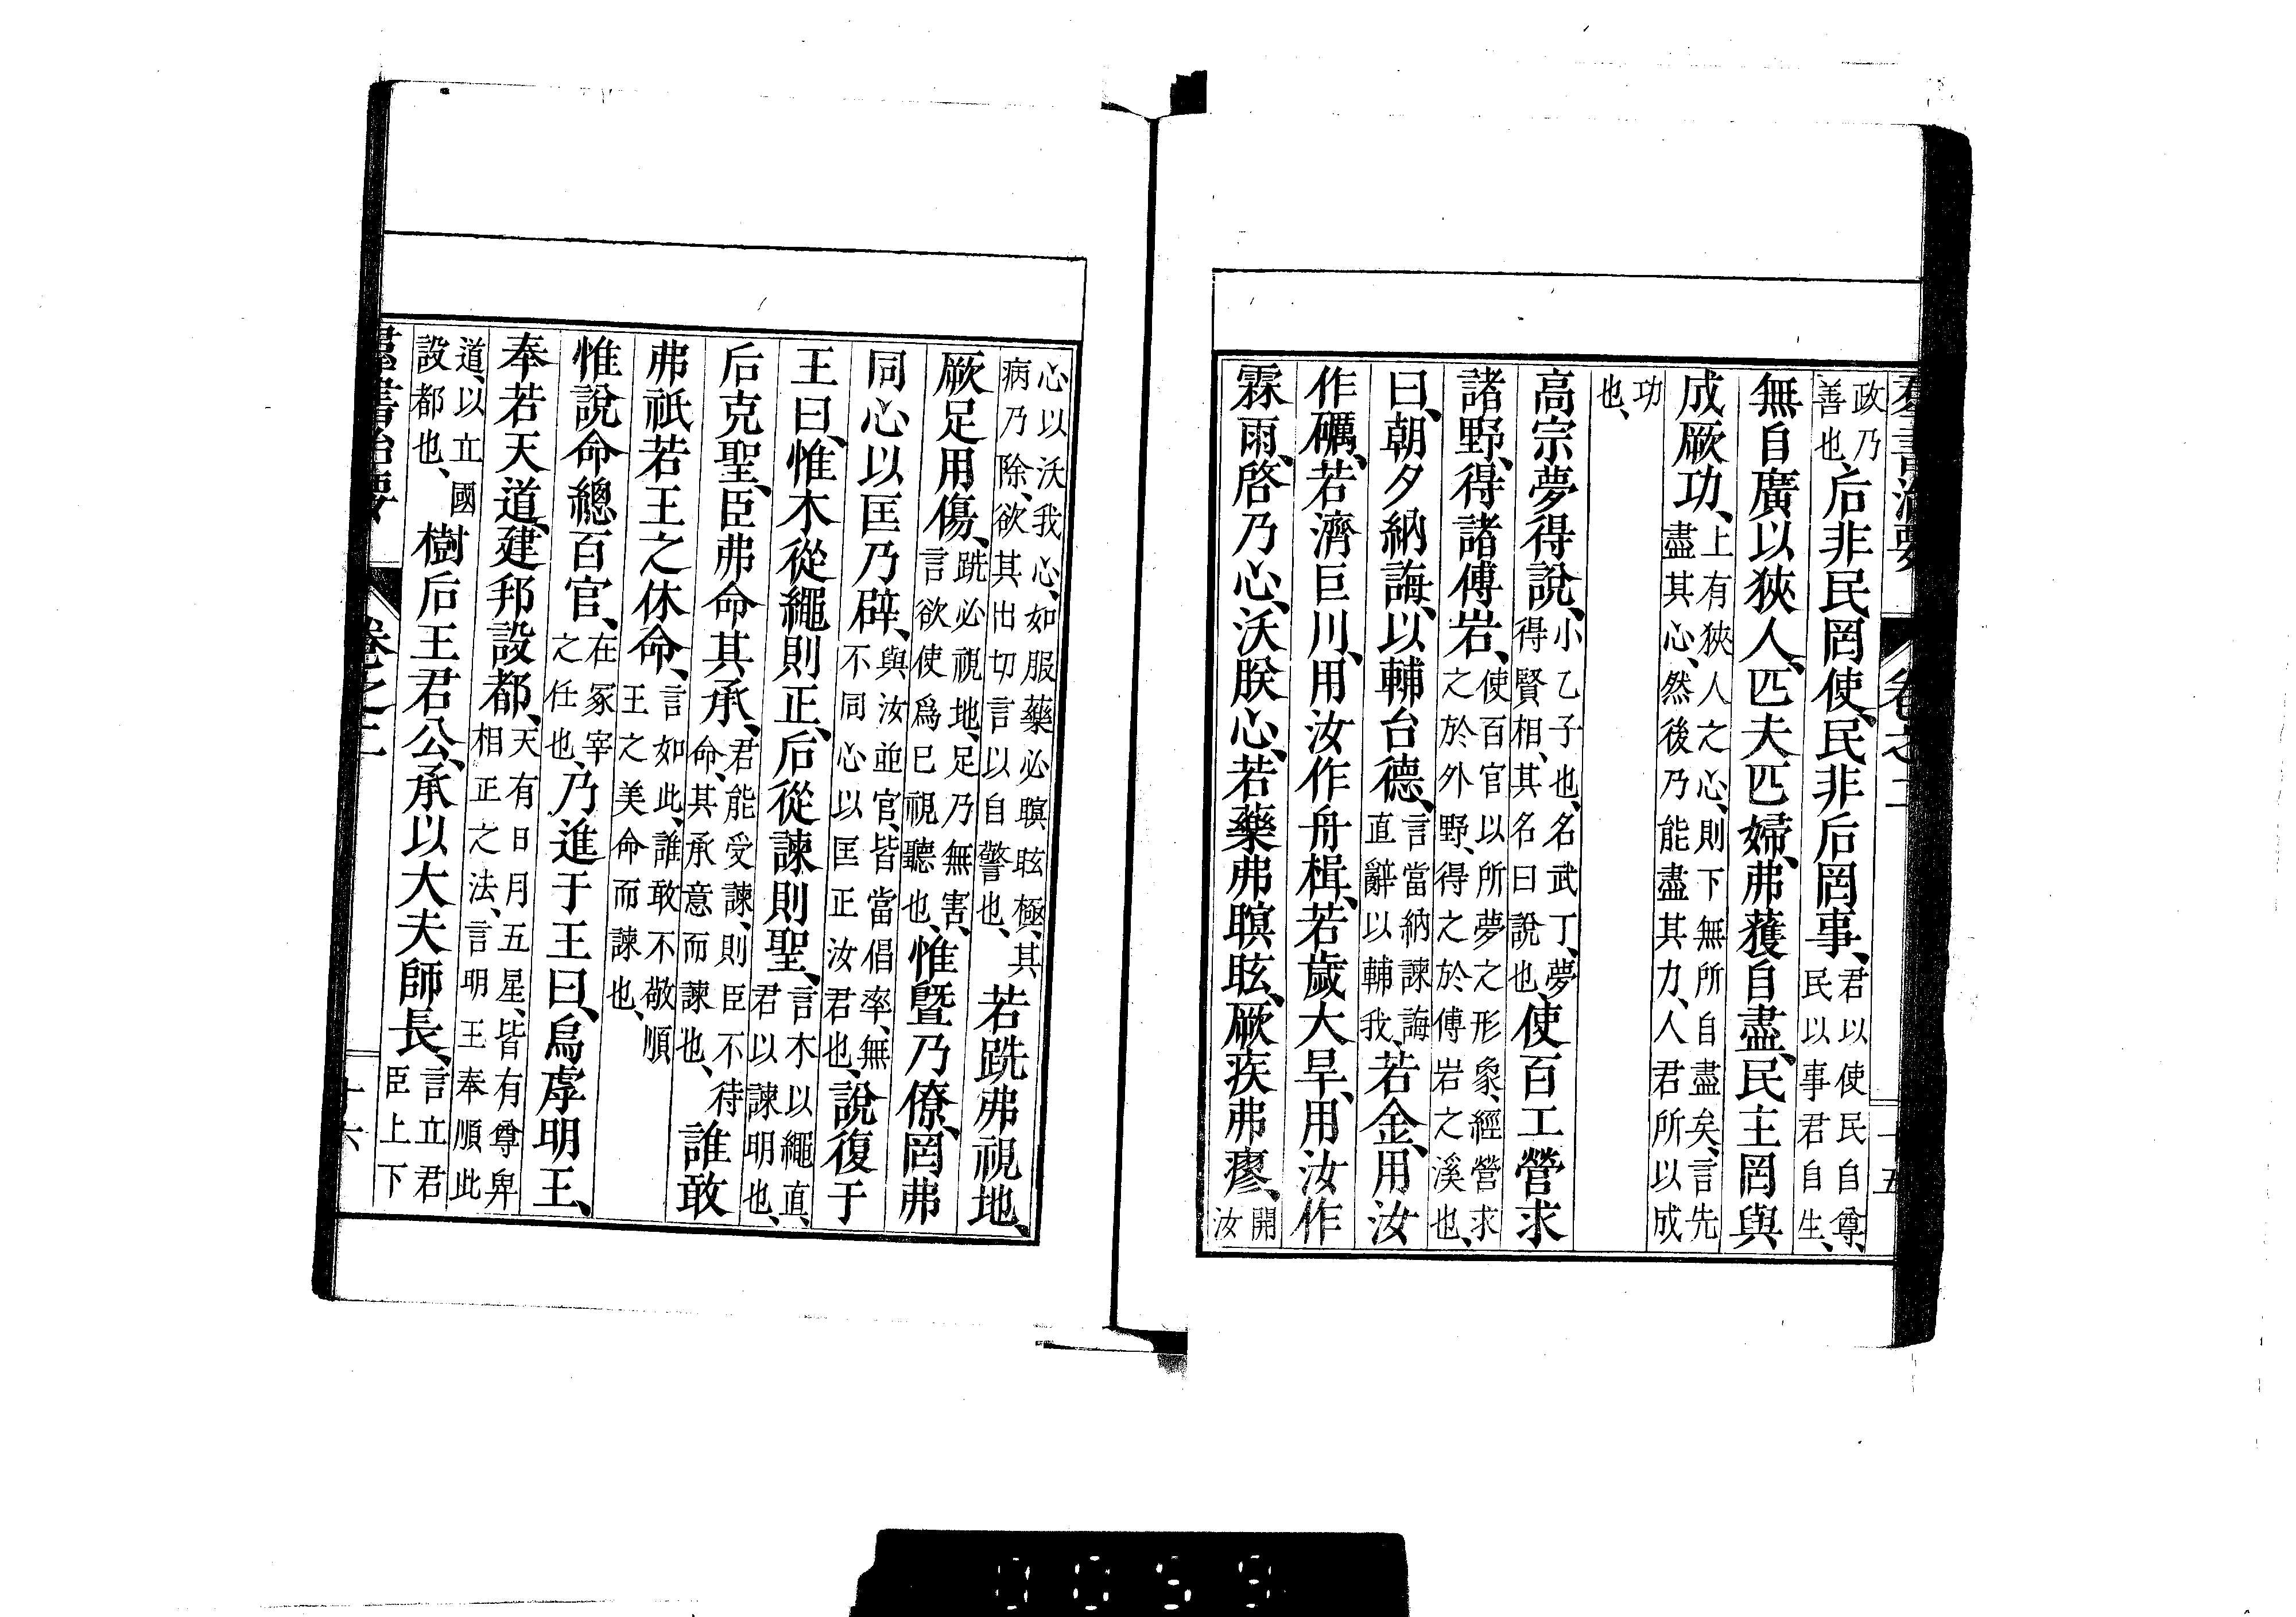 羣書治要 卷之二 十五
政乃善也、后非民罔使、民非后罔事、君以使民自尊、民以事君自生、
無自廣以狹人、匹夫匹婦、弗獲自盡、民主罔與
成厥功、上有狹人之心、則下無所自盡矣、言先盡其心、然後乃能盡其力、人君所以成
功也、
高宗夢得說、小乙子也、名武丁、夢得賢相、其名曰說也、使百工營求
諸野、得諸傅岩、使百官以所夢之形象、經營求之於外野、得之於傅岩之溪也、
曰、朝夕納誨、以輔台德、言當納諫誨直辭以輔我、若金、用汝
作礪、若濟巨川、用汝作舟楫、若歲大旱、用汝作
霖雨、啓乃心、沃朕心、若藥弗瞑眩、厥疾弗瘳、開汝
心以沃我心、如服藥必瞑眩極、其病乃除、欲其出切言以自警也、若跣弗視地、
厥足用傷、跣必視地、足乃無害、言欲使爲已視聽也、惟曁乃僚、罔弗
同心以匡乃辟、與汝並官、皆當倡率、無不同心以匡正汝君也、說復于
王曰、惟木從繩則正、后從諫則聖、言木以繩直、君以諫明也、
后克聖、臣弗命其承、君能受諫、則臣不待命、其承意而諫也、誰敢
弗祗若王之休命、言如此、誰敢不敬順王之美命而諫也、
惟說命總百官、在冢宰之任也、乃進于王曰、烏虖明王、
奉若天道、建邦設都、天有日月五星、皆有尊卑相正之法、言明王奉順此
道、以立國設都也、樹后王君公、承以大夫師長、言立君臣上下
羣書治要 卷之二 十六
0059